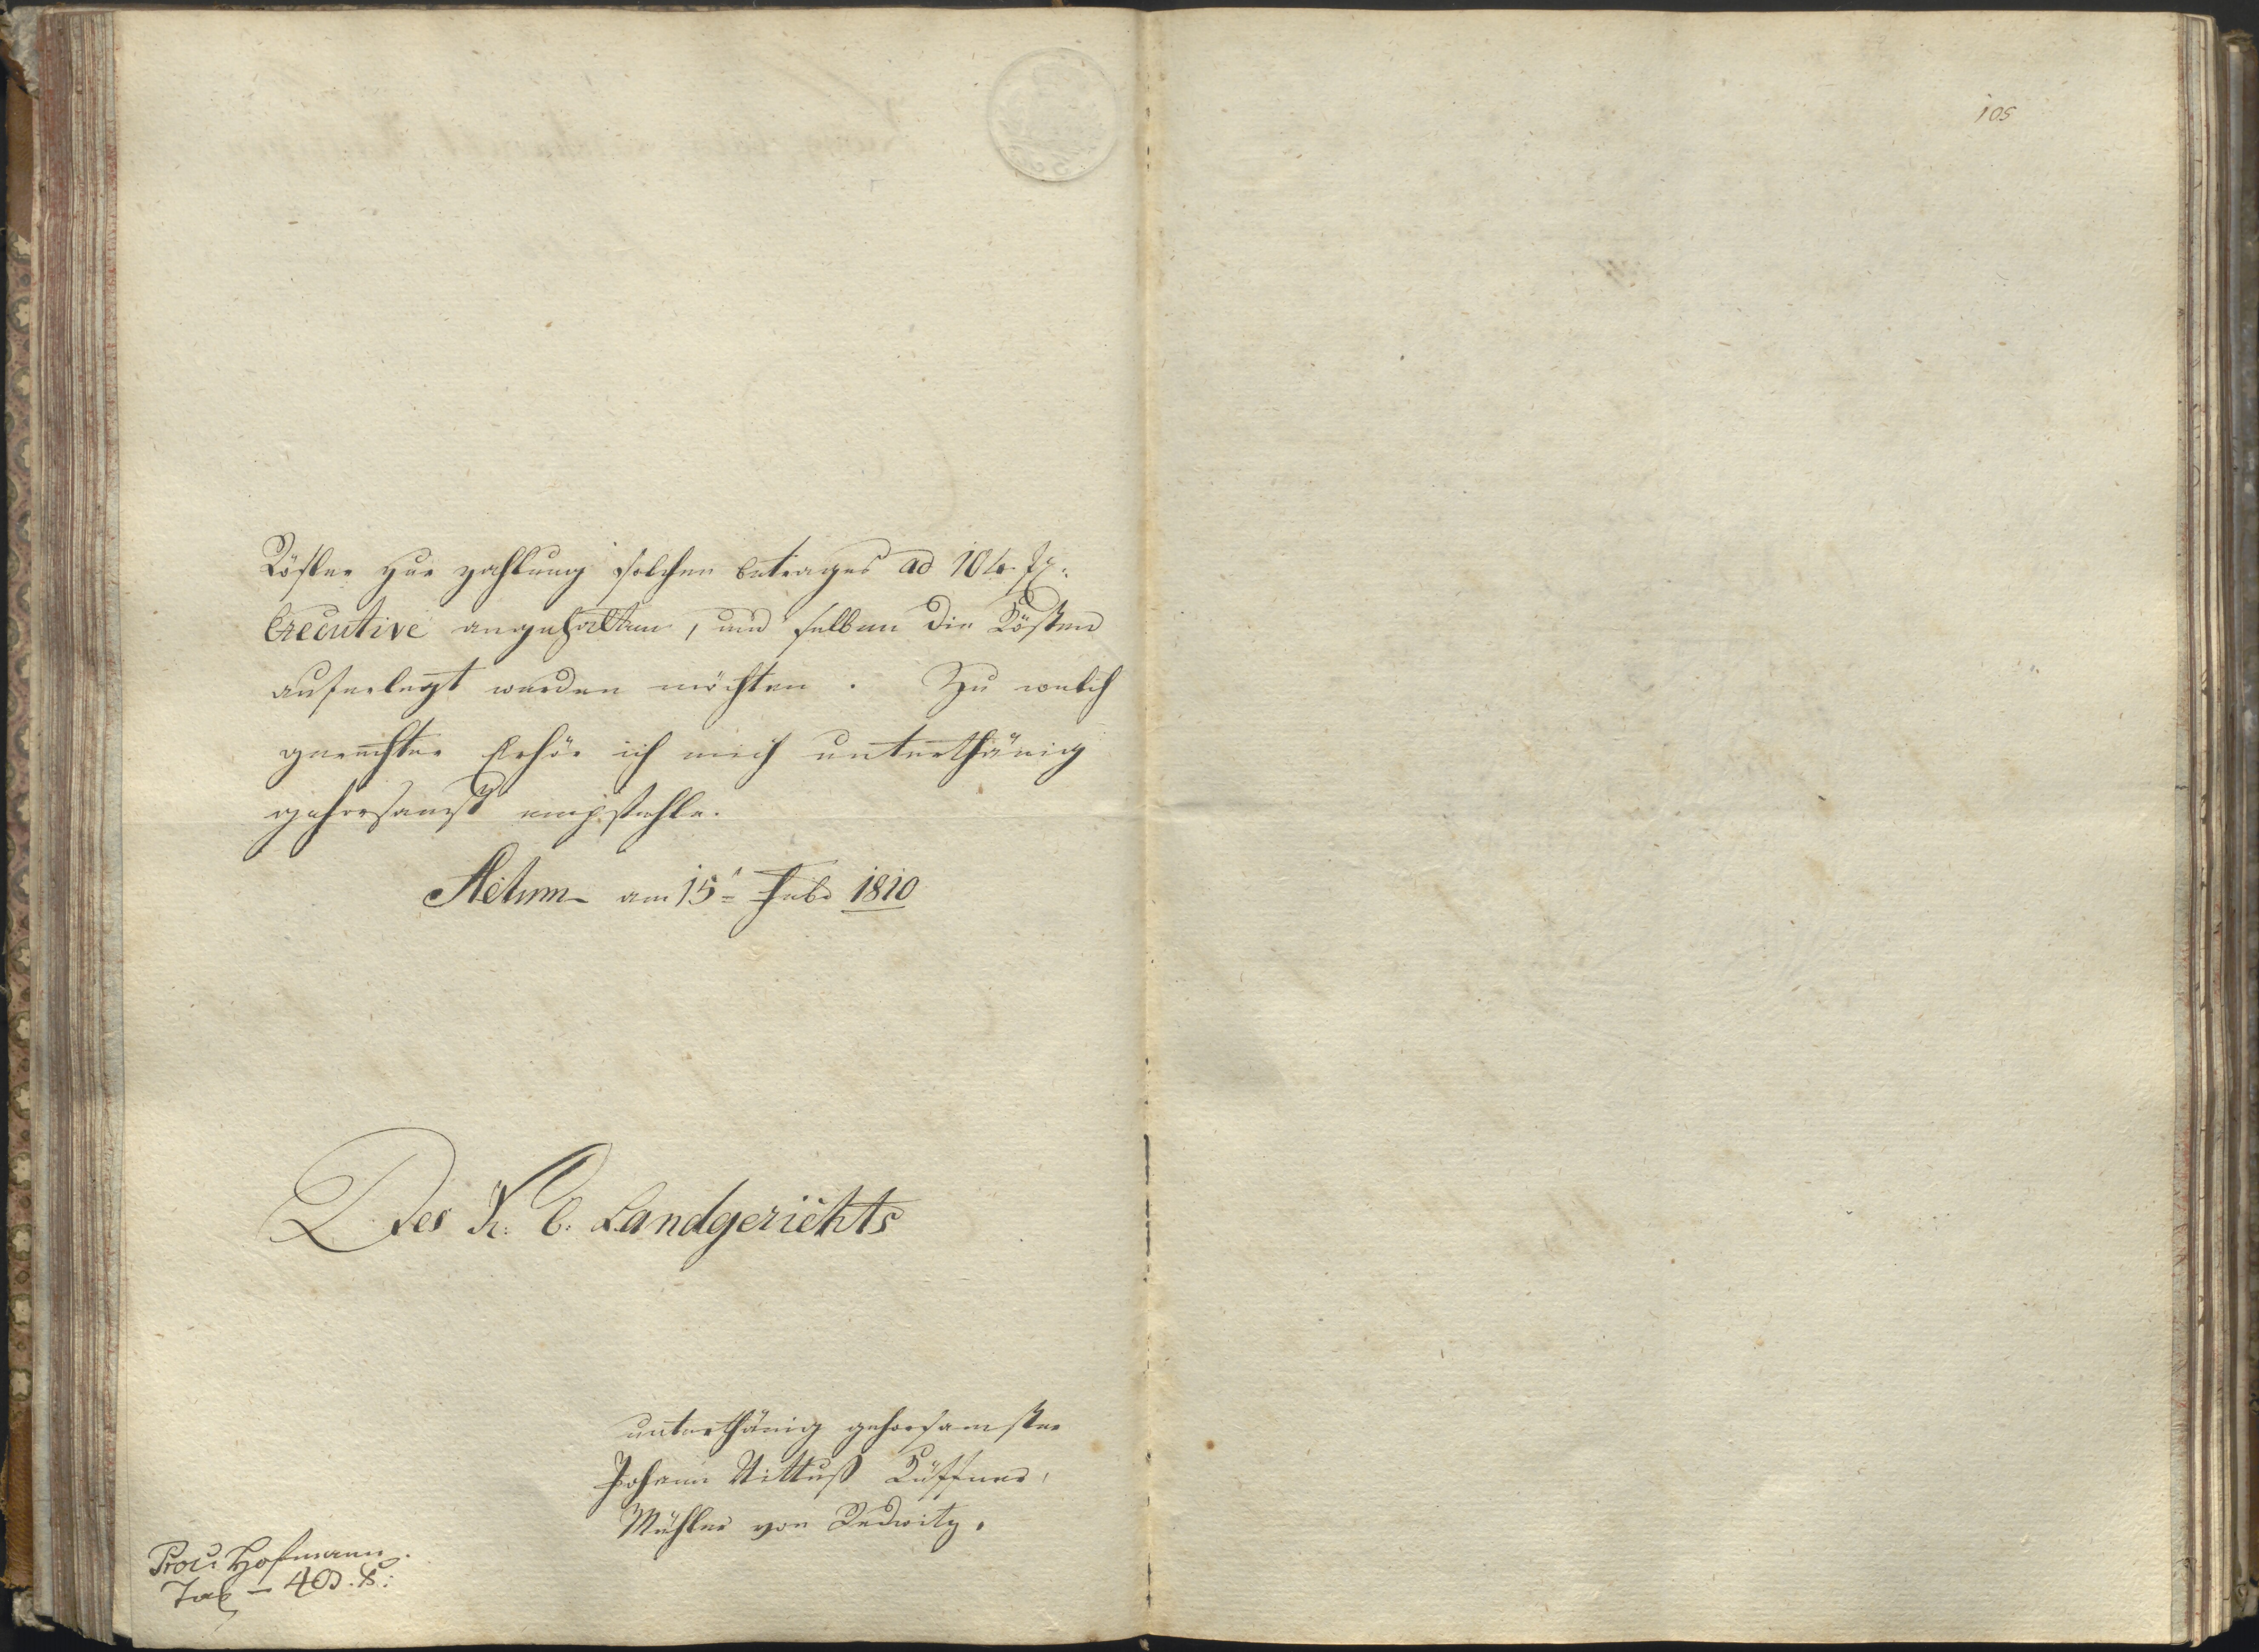 105
Rösler zur zahlung solchen betrages ad 104 fx:
Executive angehalten, und selben die Kösten
auferlegt werden möchten. Zu welch
gerechter Erhör ich mich unterthänig
gehorsamst empfehle.
Actum am 15t Febr 1810
Des K. B. Landgerichts
unterthänig gehorsamster
Johann Vittuß Küffner,
Mühler von Redwitz.
Proc: Hofmann.
Tax – 40. X: